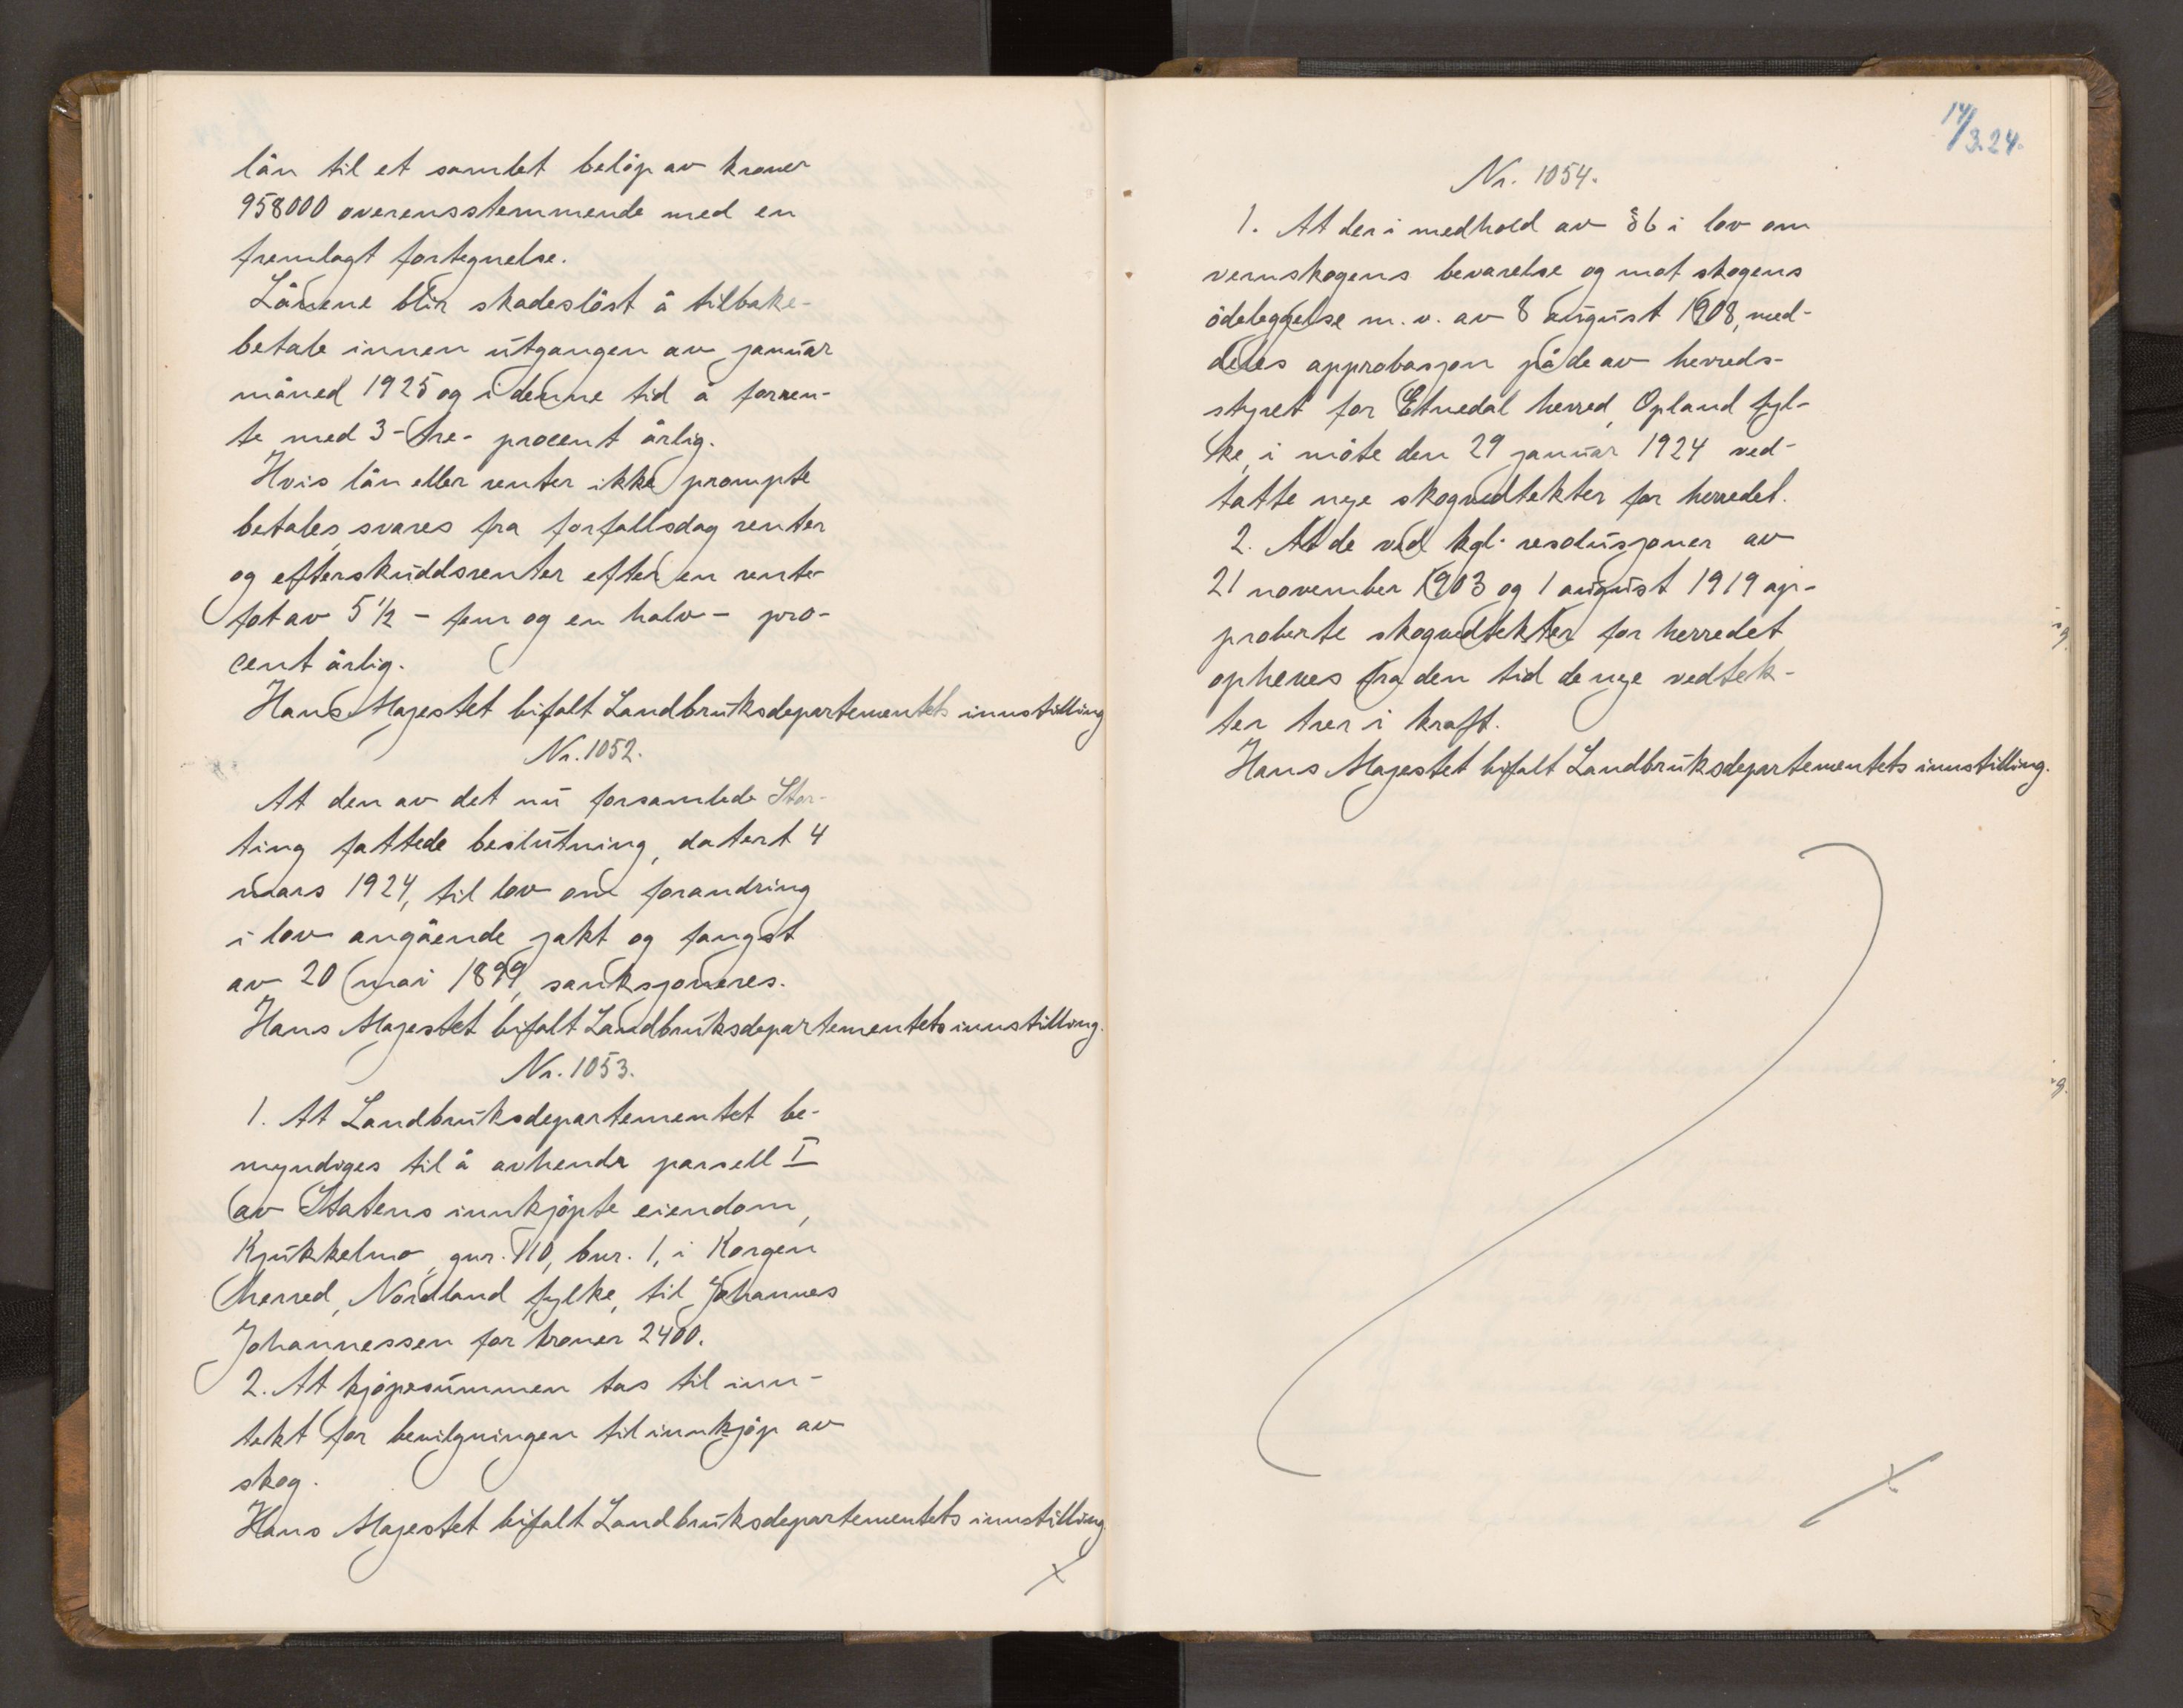 lån til et samlet beløp av kroner
958000 overensstemmende med en
fremlagt fortegnelse.
Lånene blir skadesløst å tilbake-
betale innen utgangen av januar
måned 1925 og i denne tid å forren-
te med 3 - tre - procent årlig.
Hvis lån eller renter ikke prompte
betales, svares fra forfallsdag renter
og efterskuddsrenter efter en rente-
fot av 5 1/2 - fem og en halv - pro-
cent årlig.
Hans Majestet bifalt Landbruksdepartementets innstilling
Nr. 1052.
At den av det nu forsamlede Stor-
ting fattede beslutning, datert 4
mars 1924, til lov om forandring
i lov angående jakt og fangst
av 20 mai 1899, sanksjoneres.
Hans Majestet bifalt Landbruksdepartementets innstilling.
Nr. 1053.
1. At Landbruksdepartementet be-
myndiges til å avhende parsell I
av Statens innkjøpte eiendom,
Kjukkelmo, gnr. 110, bnr. 1, i Korgen
herred, Nordland fylke, til Johannes
Johannessen for kroner 2400.
2. At kjøpesummen tas til inn-
tekt for bevilgningen til innkjøp av
skog.
Hans Majestet bifalt Landbruksdepartementets innstilling.
14/3.24.
Nr. 1054.
1. At der i medhold av § 6 i lov om
vernskogens bevarelse og mot skogens
ødeleggelse m. v. av 8 august 1908, med-
deles approbasjon på de av herreds-
styret for Etnedal herred, Opland fyl-
ke, i møte den 29 januar 1924 ved-
tatte nye skogvedtekter for herredet.
2. At de ved kgl. resolusjoner av
21 november 1903 og 1 august 1919 ap-
proberte skogvedtekter for herredet
opheves fra den tid de nye vedtek-
ter trer i kraft.
Hans Majestet bifalt Landbruksdepartementets innstilling.